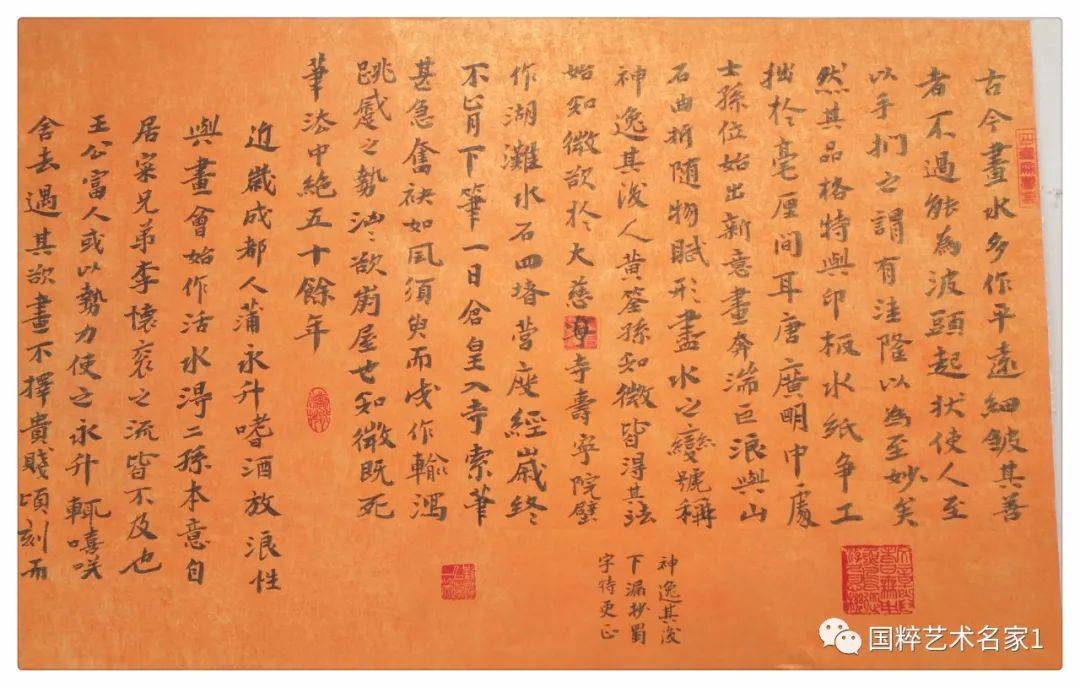 古今畫水多作平遠細皴其善
者不過能為波頭起伏使人至
以手捫之謂有洼隆以為至妙矣
然其品格特與印板水紙争工
拙於毫厘間耳唐廣明中處
士孫位始出新意畫奔湍巨浪與山
石曲折随物賦形盡水之變號稱
神逸其後人黄筌孫知微皆得其法
始知微欲於大慈寺壽寧院壁
作湖灘水石四堵营度經歲終
不肯下筆一日倉皇入寺索筆
甚急奮袂如風須臾而成作輸瀉
跳蹙之勢洶〻欲崩屋也知微既死
筆法中絶五十餘年
近歲成都人蒲永升嗜酒放浪性
與畫會始作活水得二孫本意自
居寀兄弟李懷衮之流皆不及也
王公富人或以勢力使之永升輒嘻咲
舍去遇其欲畫不擇貴賤頃刻而
神逸其後
下漏抄蜀
字特更正
国粹艺术名家1